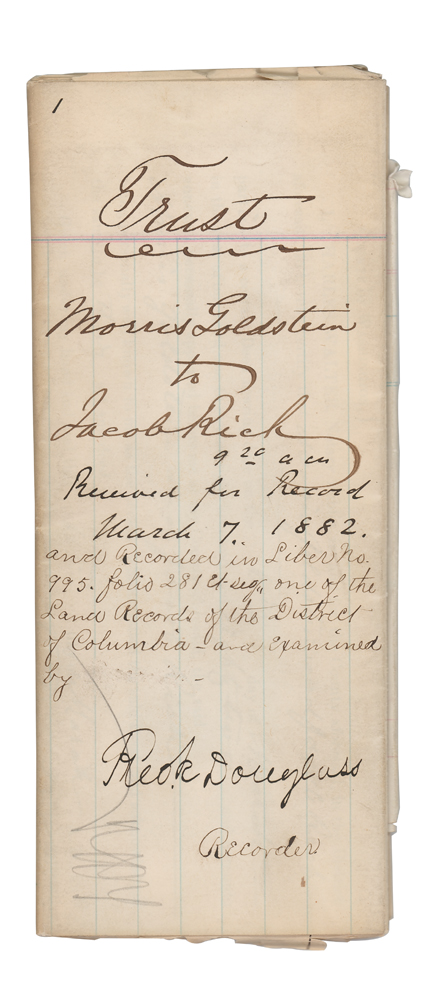 1
Trust
Morris Goldstein
to
Jacob Rich
9 20 am
Received for Record
March 7. 1882.
and Recorded in Liber No.
995. folio 281 et seq, one of the
Land Records of the District
of Columbia - and examined
by
Fredk Douglass
Recorder